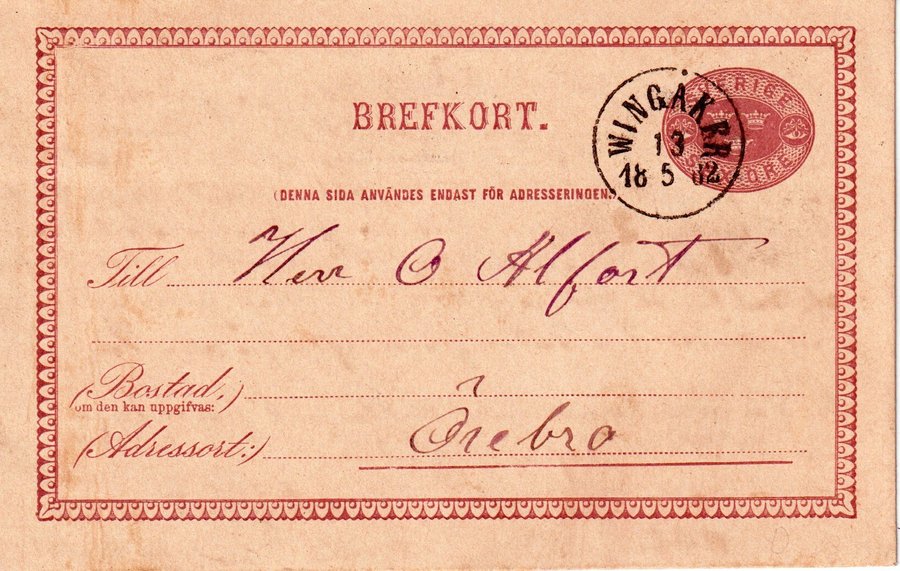 BREFKORT.
SVERIGE
WINGÅKER
13
18 5 82
(DENNA SIDA ANVÄNDES ENDAST FÖR ADRESSERINGEN.)
Till Herr O Alfort
(Bostad,)
om den kan uppgifvas:
(Adressort:) Örebro